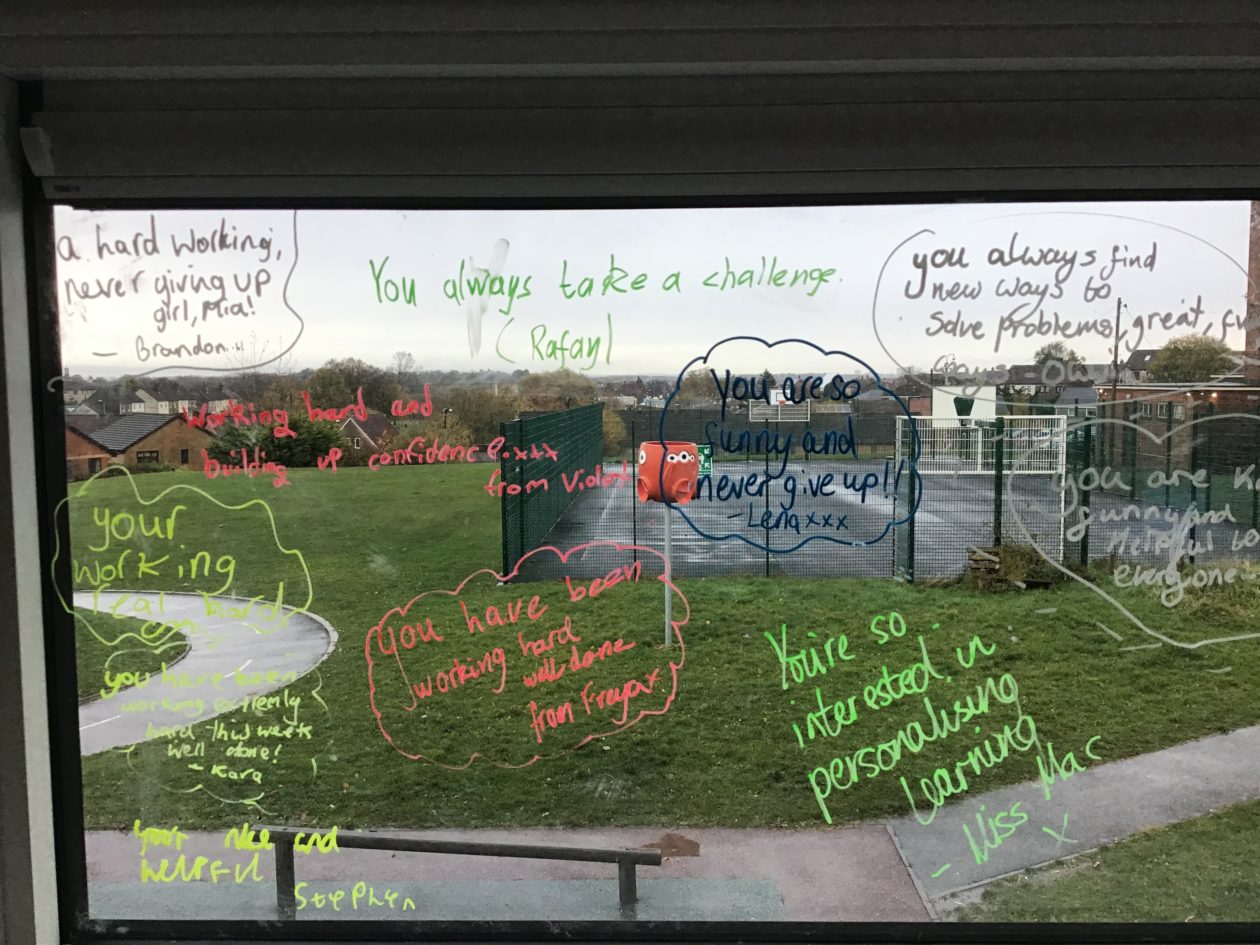 a hard working,
never giving up
girl, Mia!
- Brandon
You always take a challenge.
(Rafay)
you always find
new ways to
solve problems, great,
ways -
Working hard and
building up confidence.xxx
from Violet
You are so
funny and
never give up!!
- Lena xxx
you are
funny and
helpful to
everyone-
your
working
real hard
you have been
working extremly
hard this week
well done!
- Kara
you have been
working hard
well done
from Freya x
You're so
interested in
personalising
learning
- Miss Mac
x
your nice and
helpful
Stephen